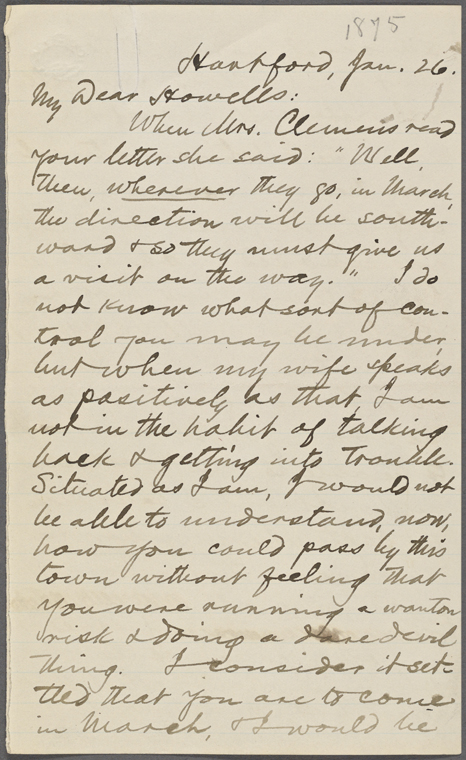 1875
Hartford, Jan. 26.
My Dear Howells:
When Mrs. Clemens read
your letter she said: "Well,
then, wherever they go, in March,
the direction will be south-
ward & so they must give us
a visit on the way." I do
not know what sort of con-
trol you may be under,
but when my wife speaks
as positively as that, I am
not in the habit of talking
back & getting into trouble.
Situated as I am, I would not
be able to understand, now,
how you could pass by this
town without feeling that
you were running a wanton
risk & doing a daredevil
thing. I consider it set-
tled that you are to come
in March, & I would be